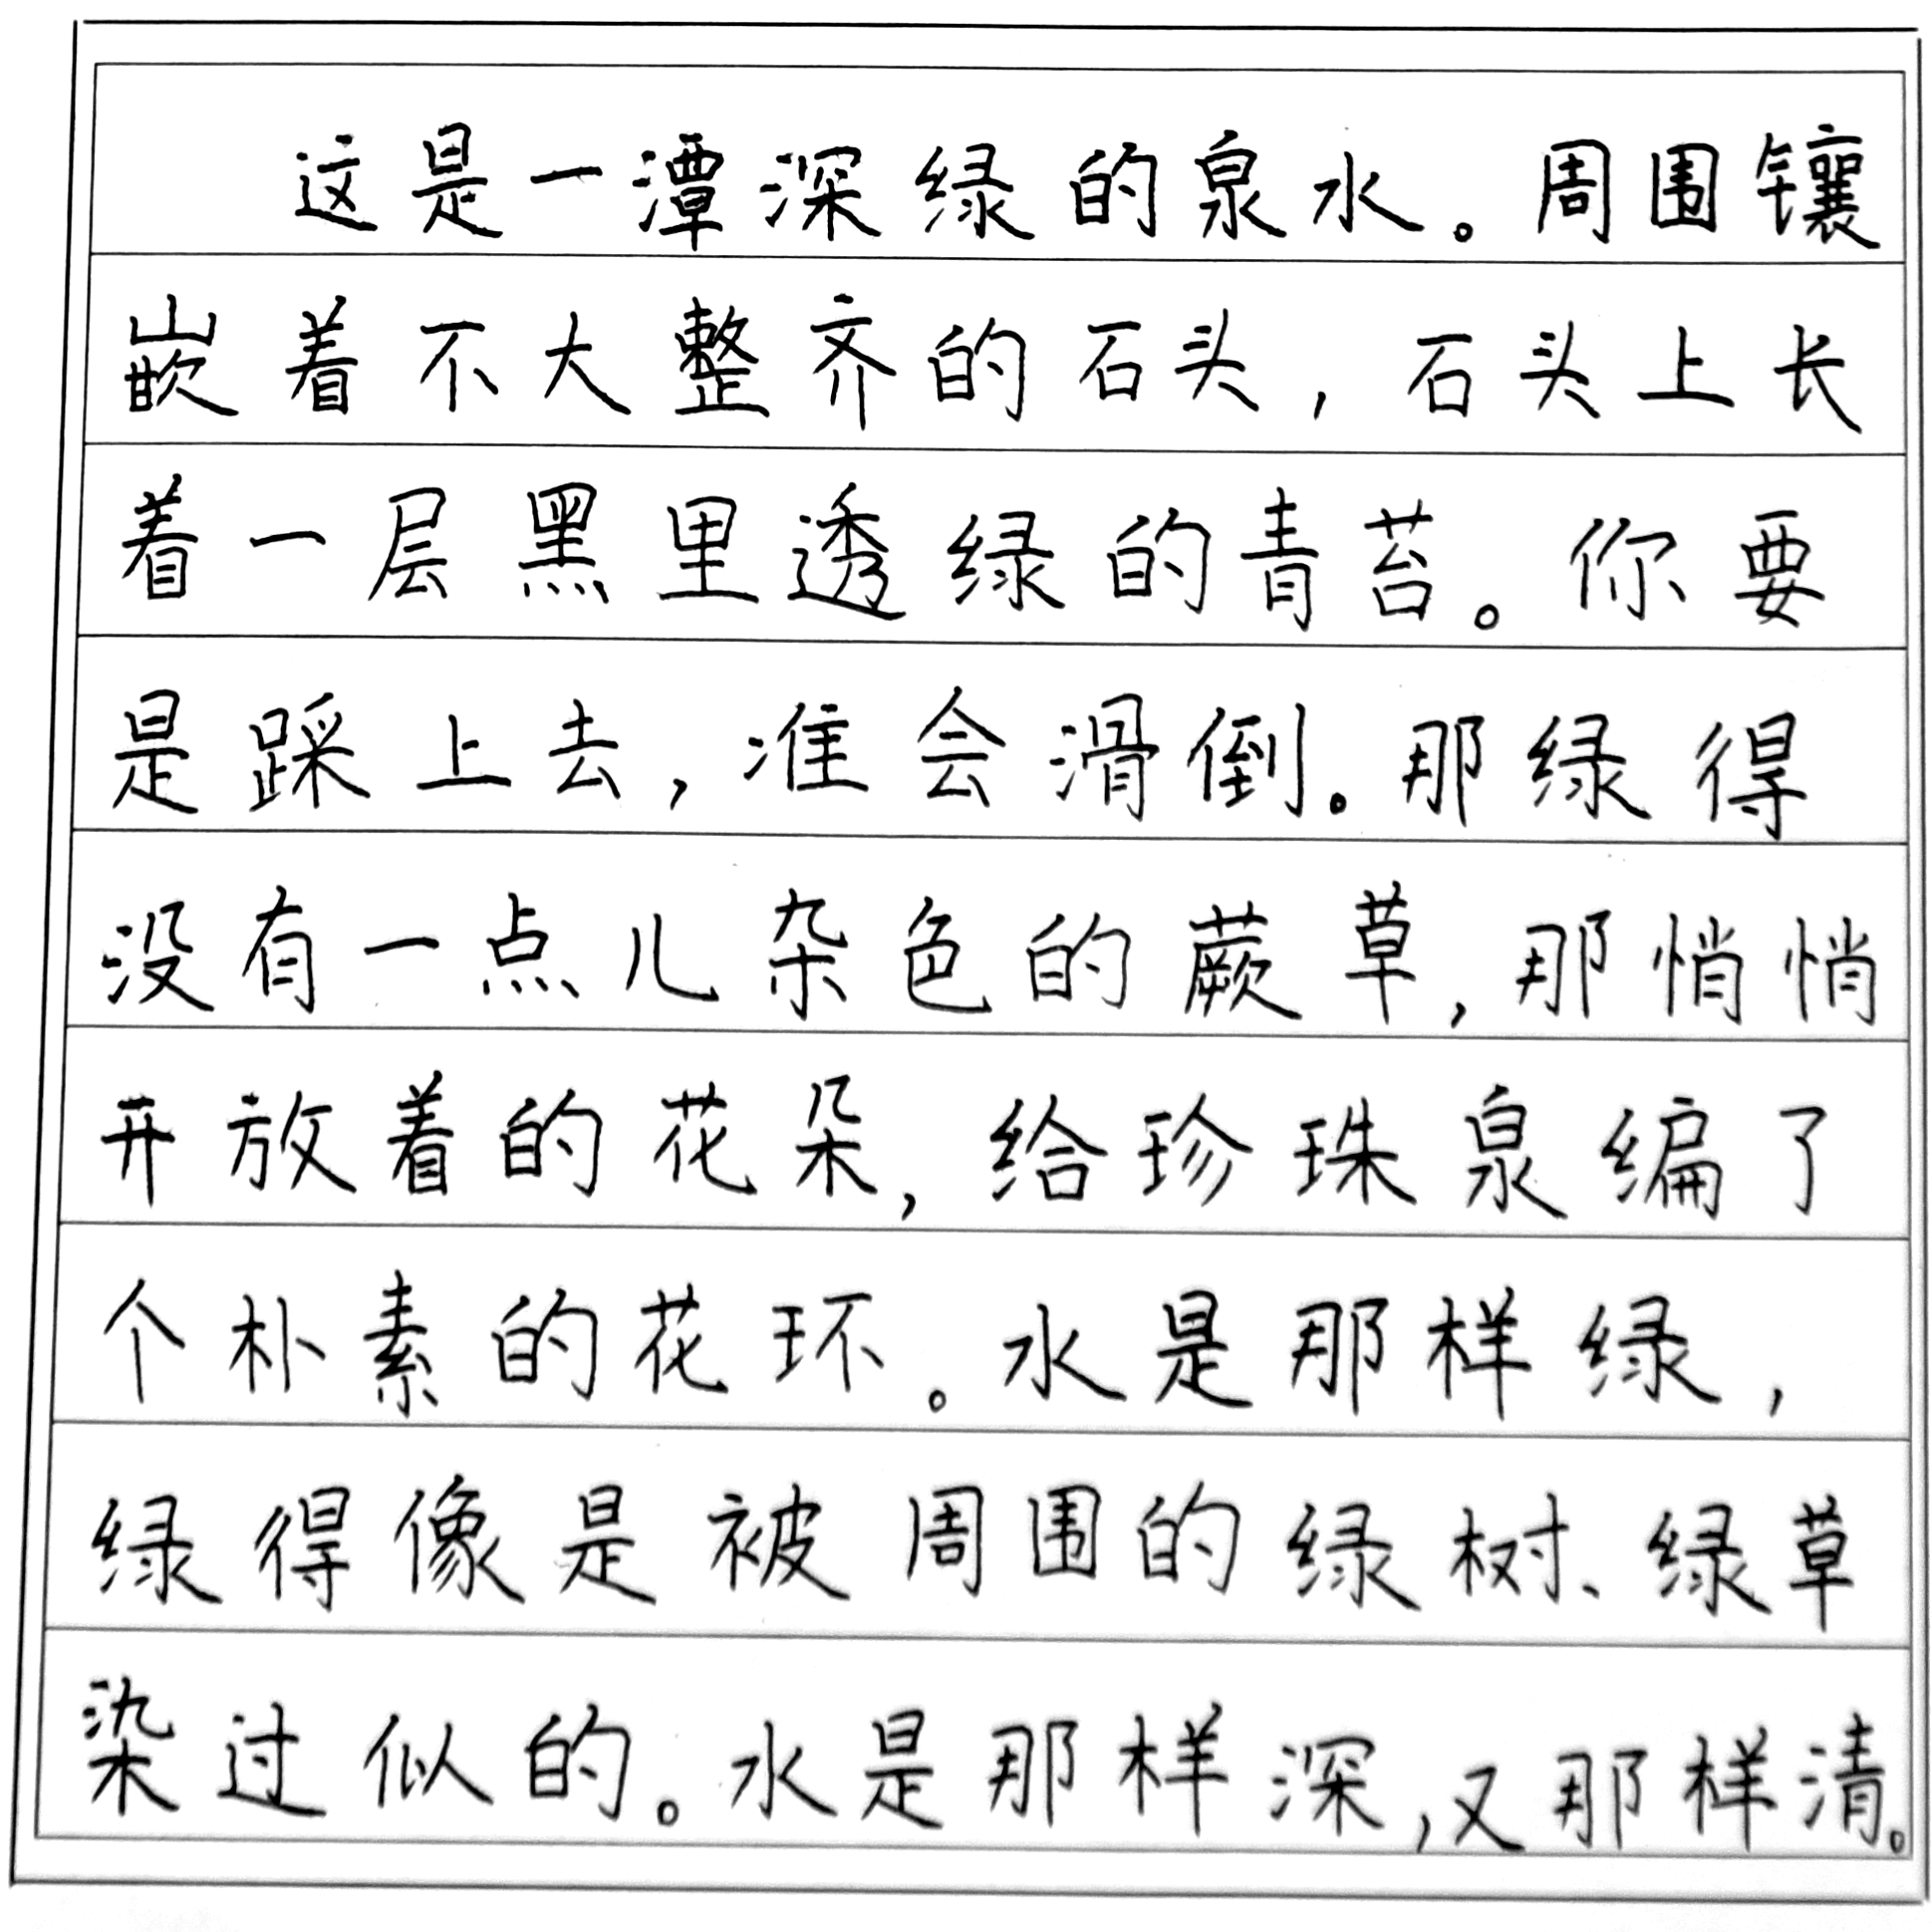 这是一潭深绿的泉水。周围镶
嵌着不大整齐的石头，石头上长
着一层黑里透绿的青苔。你要
是踩上去，准会滑倒。那绿得
没有一点儿杂色的蕨草，那悄悄
开放着的花朵，给珍珠泉编了
个朴素的花环。水是那样绿，
绿得像是被周围的绿树、绿草
染过似的。水是那样深，又那样清。